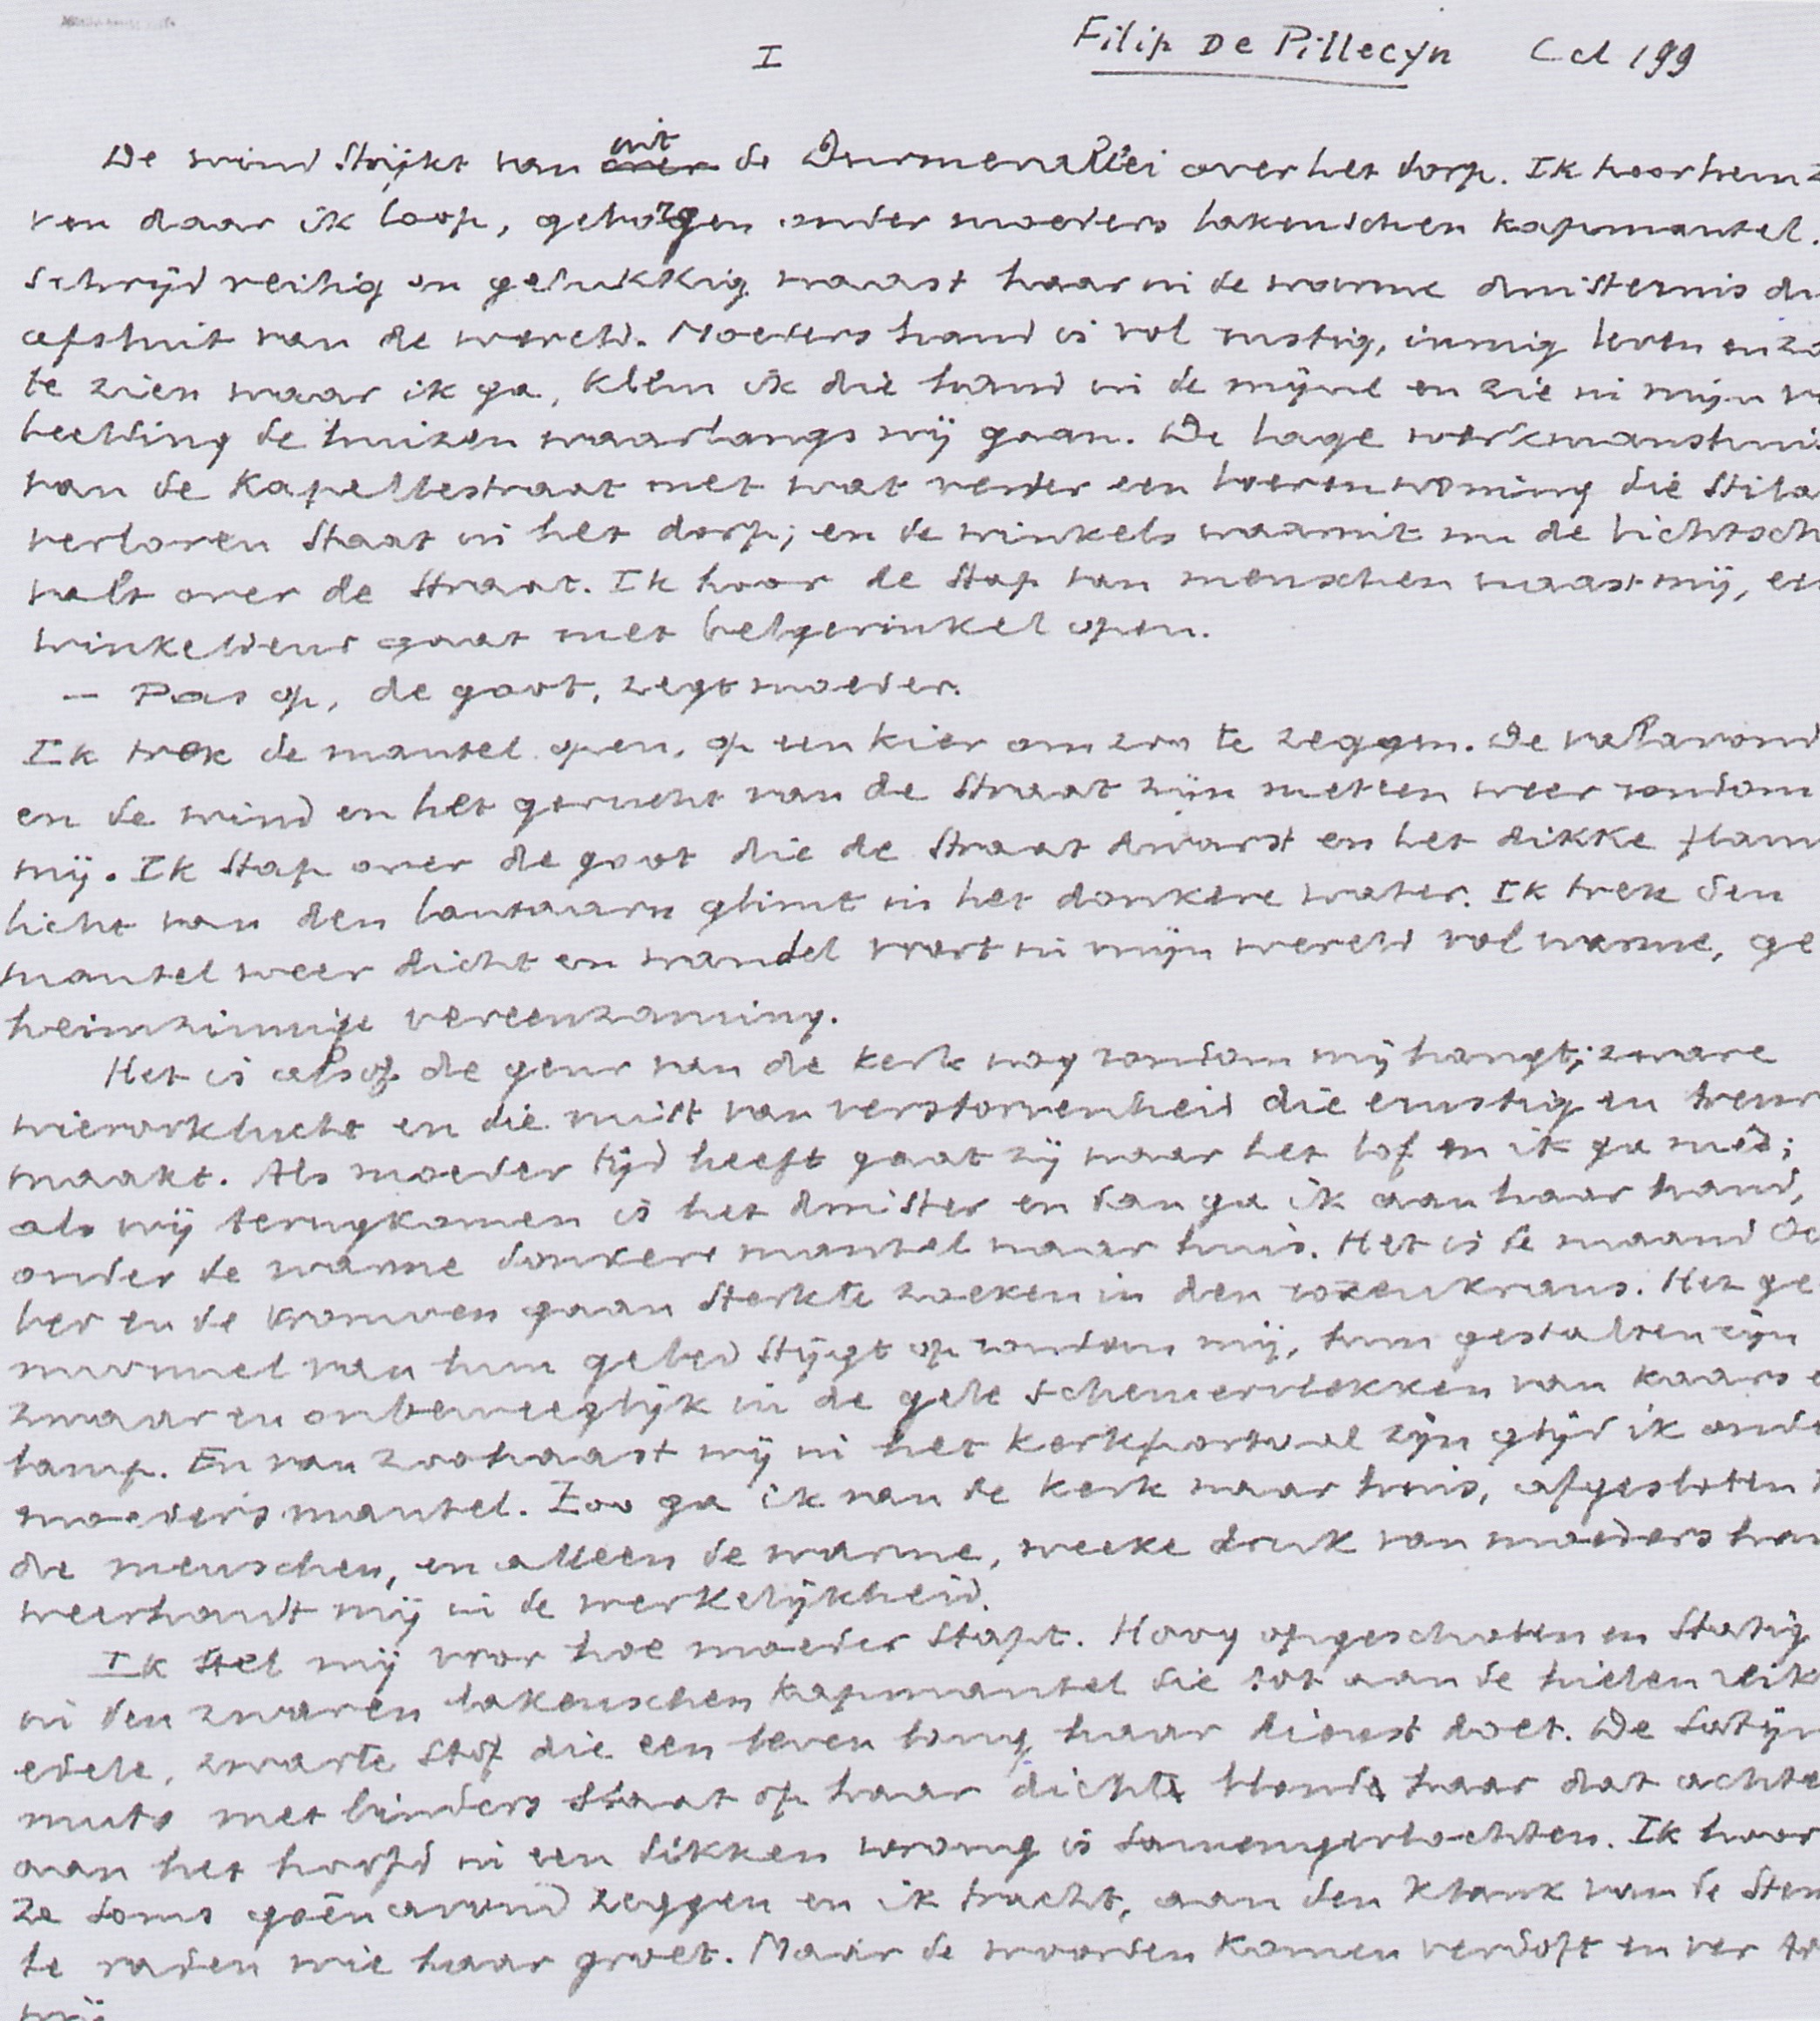 I Filip De Pillecyn Cel 199
De wind strijkt van over uit de Durmevallei over het dorp. Ik hoor hem z
ven daar ik loop, geborgen onder moeders lakenschen kapmantel.
schrijd veilig en gelukkig naast haar in de warme duisternis di
afsluit van de wereld. Moeders hand is vol rustig, innig leven en zo
te zien waar ik ga, klem ik die hand in de mijne en zie in mijn v
beelding de huizen waarlangs wij gaan. De lage werkmanshui
van de Kapellestraat met wat verder een boerenwoning die stila
verloren staat in het dorp; en de winkels waaruit nu de lichtsch
valt over de straat. Ik hoor de stap van menschen naast mij, en
winkeldeur gaat met belgerinkel open.
— Pas op, de goot, zegt moeder.
Ik trek de mantel open, op een kier om zoo te zeggen. De valavond
en de wind en het gerucht van de straat zijn meteen weer rondom
mij. Ik stap over de goot die de straat dwarst en het dikke flam
licht van den lantaarn glimt in het donkere water. Ik trek den
mantel weer dicht en wandel voort in mijn wereld vol warme, ge
heimzinnige vereenzaming.
Het is alsof de geur van de kerk nog rondom mij hangt; zware
wierooklucht en die mist van verstorvenheid die ernstig en treur
maakt. Als moeder tijd heeft gaat zij naar het lof en ik ga mee;
als wij terugkomen is het duister en dan ga ik aan haar hand,
onder de warme donkere mantel naar huis. Het is de maand Oc
ber en de vrouwen gaan sterkte zoeken in den rozenkrans. Het ge
murmel van hun gebed stijgt op rondom mij, hun gestalten zijn
zwaar en onbeweeglijk in de gele schemervlekken van kaars e
lamp. En van zoohaast wij in het kerkportaal zijn glijd ik onde
moeders mantel. Zoo ga ik van de kerk naar huis, afgesloten
de menschen, en alleen de warme, weeke druk van moeders han
weerhoudt mij in de werkelijkheid.
Ik stel mij voor hoe moeder stapt. Hoog opgeschoten en statig
in den zwaren lakenschen kapmantel die tot aan de hielen reik
edele, zwarte stof die een leven lang haar dienst doet. De satijn
muts met binders staat op haar dicht blond haar dat achte
aan het hoofd in een dikken wrong is samengevlochten. Ik hoor
ze soms goên avond zeggen en ik tracht, aan den klank van de stem
te raden wie haar groet. Maar de woorden komen verdoft en ver to
mij